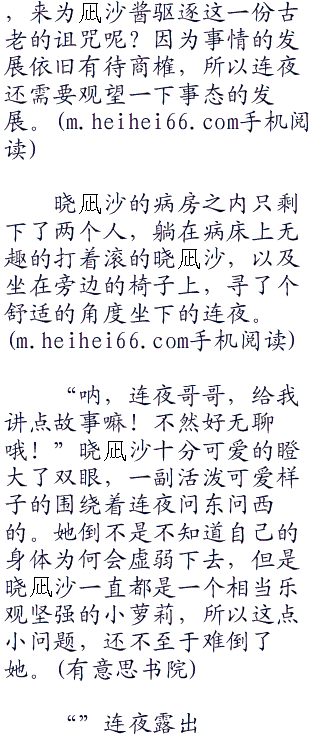 ，来为凪沙酱驱逐这一份古
老的诅咒呢？因为事情的发
展依旧有待商榷，所以连夜
还需要观望一下事态的发
展。(m.heihei66.com手机阅
读)
晓凪沙的病房之内只剩
下了两个人，躺在病床上无
趣的打着滚的晓凪沙，以及
坐在旁边的椅子上，寻了个
舒适的角度坐下的连夜。
(m.heihei66.com手机阅读)
“呐，连夜哥哥，给我
讲点故事嘛！不然好无聊
哦！”晓凪沙十分可爱的瞪
大了双眼，一副活泼可爱样
子的围绕着连夜问东问西
的。她倒不是不知道自己的
身体为何会虚弱下去，但是
晓凪沙一直都是一个相当乐
观坚强的小萝莉，所以这点
小问题，还不至于难倒了
她。(有意思书院)
“”连夜露出